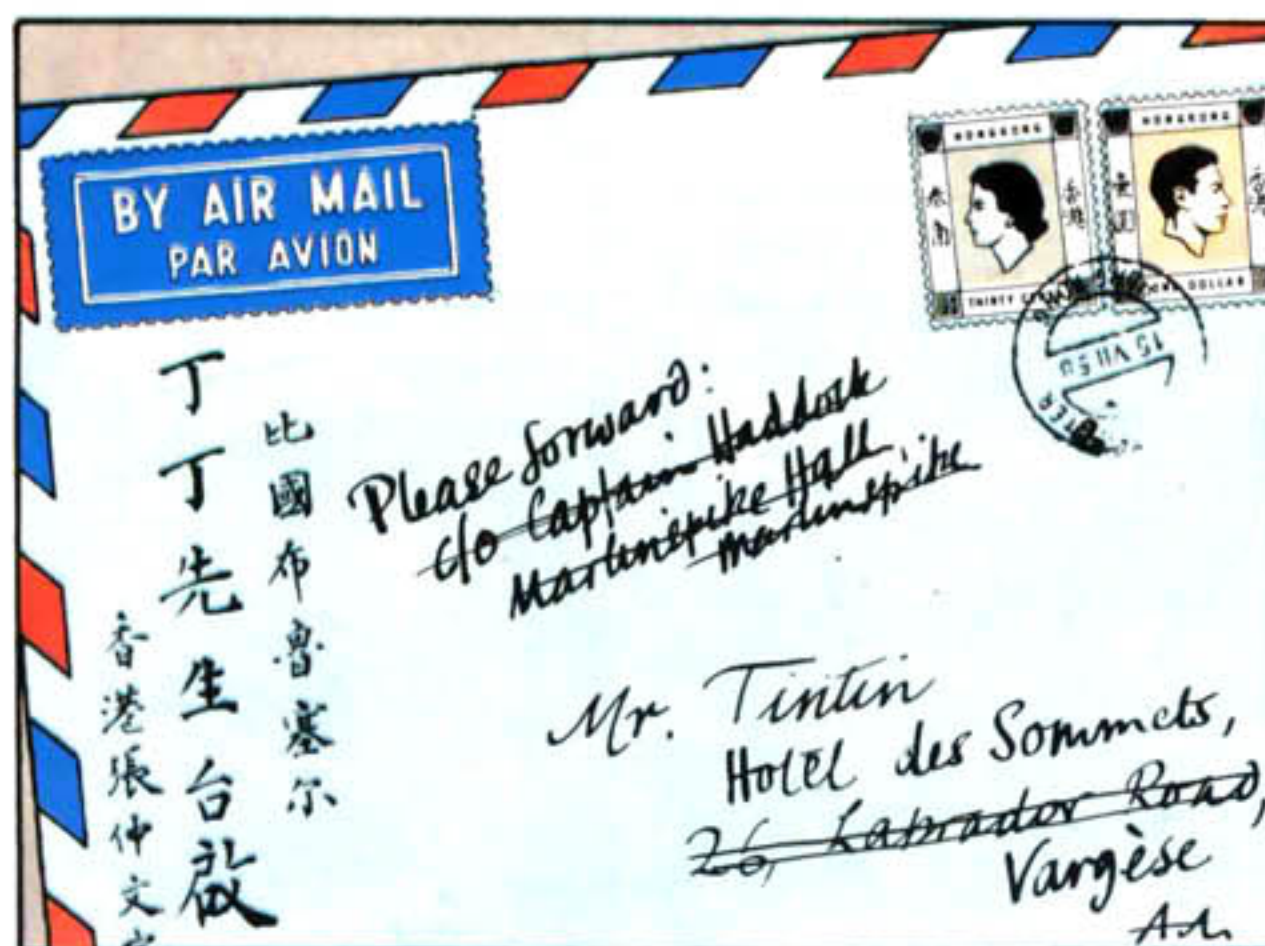 BY AIR MAIL
PAR AVION
HONGKONG
香港
THIRTY
HONGKONG
壹圓
香港
ONE DOLLAR
15 VII 58
比國布魯塞尔
丁丁先生台啟
香港張仲文
Please forward:
c/o Captain Haddock
Marlinspike Hall
Marlinspike
Mr. Tintin
Hotel des Sommets,
26, Labrador Road,
Vargèse